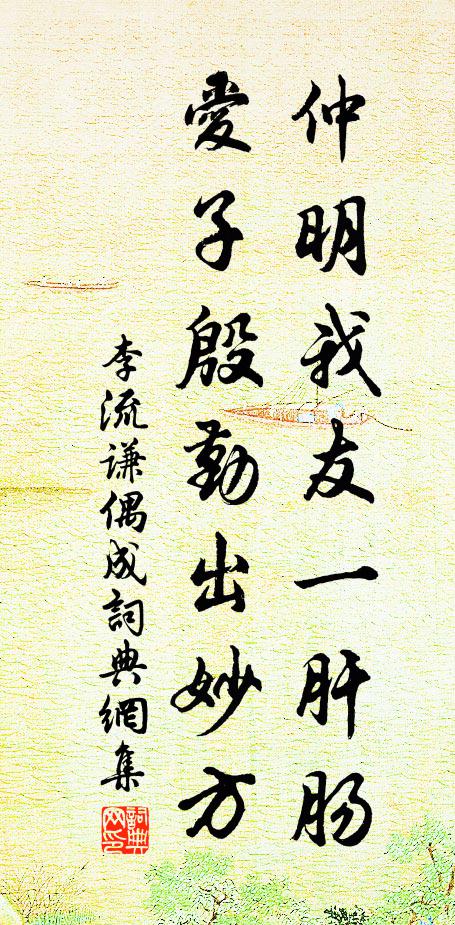 仲明我友一肝肠
愛子殷勤出妙方
李流谦偶成詞典網集
詞典網印